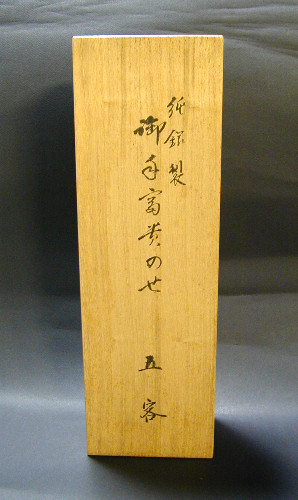 純銀製
御手富貴のせ 五客